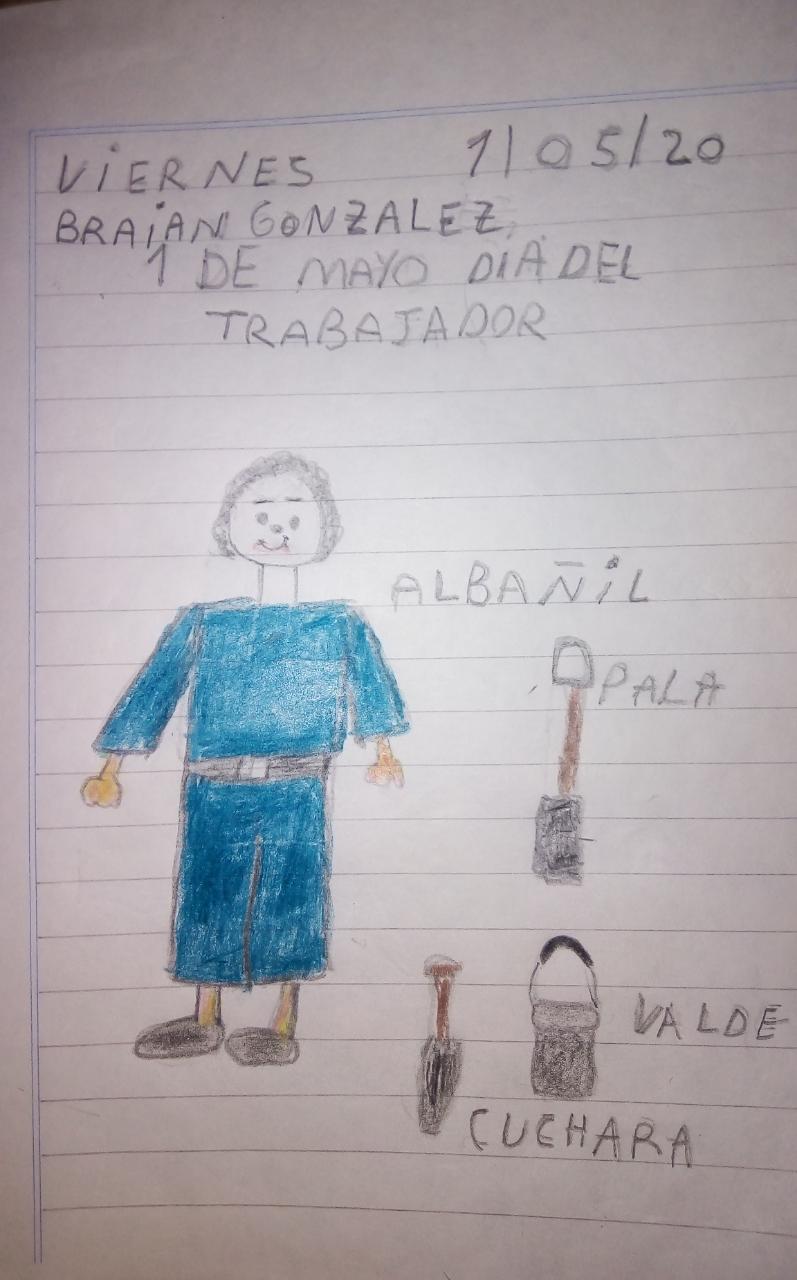 VIERNES 1/05/20
BRAIAN GONZALEZ
1 DE MAYO DIA DEL
TRABAJADOR
ALBAÑIL
PALA
VALDE
CUCHARA